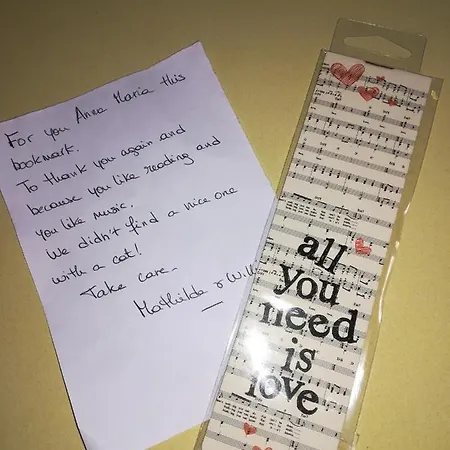 For you Anna Maria this
bookmark.
To thank you again and
because you like reading and
you like music.
We didn't find a nice one
with a cat!
Take care
Mathilda &
all
you
need
is
love